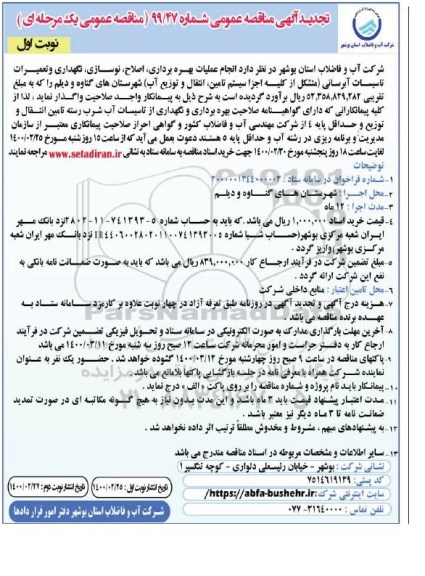 تجدید آگهی مناقصه عمومی شماره ۹۹/۴۷ (مناقصه عمومی یک مرحله ای)
نوبت اول
شرکت آب و فاضلاب استان بوشهر
شرکت آب و فاضلاب استان بوشهر در نظر دارد انجام عملیات بهره برداری، اصلاح، نوسازی، نگهداری و تعمیرات
تاسیسات آبرسانی (متشکل از کلیه اجزا سیستم تامین، انتقال و توزیع آب) شهرستان های گناوه و دیلم را که به مبلغ
تقریبی ۵۲,۳۵۸,۸۲۹,۳۸۲ ریال برآورد گردیده است به شرح ذیل به پیمانکار واجد صلاحیت واگذار نماید، لذا از
کلیه پیمانکارانی که دارای گواهینامه صلاحیت بهره برداری و نگهداری از تاسیسات آب شرب رسته تامین انتقال و
توزیع و حداقل پایه ۴ از شرکت مهندسی آب و فاضلاب کشور و گواهی احراز صلاحیت پیمانکاری معتبر از سازمان
مدیریت و برنامه ریزی در رشته آب و حداقل پایه ۵ هستند دعوت بعمل می آید که از ساعت ۱۵ روز شنبه مورخ ۱۴۰۰/۰۲/۲۵
لغایت ساعت ۱۸ روز پنجشنبه مورخ ۱۴۰۰/۰۲/۳۰ جهت خرید اسناد مناقصه به سامانه ستاد به نشانی www.setadiran.ir مراجعه نمایند
توضیحات
۱- شماره فراخوان در سامانه ستاد :
۲- محل اجرا : شهرستان های گناوه و دیلم
۳- مدت اجرا : ۱۲ ماه
۴- قیمت خرید اسناد ۱,۰۰۰,۰۰۰ ریال می باشد. که باید به حساب شماره نزد بانک مهر
ایران شعبه مرکزی بوشهر (حساب شبا شماره نزد بانک مهر ایران شعبه
مرکزی بوشهر) واریز گردد.
۵- مبلغ تضمین شرکت در فرآیند ارجاع کار ۸۳۹,۰۰۰,۰۰۰ ریال می باشد که باید به صورت ضمانت نامه بانکی به
نفع این شرکت ارائه گردد.
۶- محل تامین اعتبار : منابع داخلی شرکت
۷- هزینه درج آگهی و تجدید آگهی در روزنامه طبق تعرفه آزاد در چهار نوبت علاوه بر کارمزد سامانه ستاد به
عهده برنده مناقصه می باشد.
۸- آخرین مهلت بارگذاری مدارک به صورت الکترونیکی در سامانه ستاد و تحویل فیزیکی تضمین شرکت در فرآیند
ارجاع کار به دفتر حراست و امور محرمانه شرکت ساعت ۱۳ صبح روز سه شنبه مورخ ۱۴۰۰/۰۳/۱۱ می باشد
۹- پاکتهای مناقصه در ساعت ۹ صبح روز چهارشنبه مورخ ۱۴۰۰/۰۳/۱۲ گشوده خواهد شد. حضور یک نفر به عنوان
نماینده شرکت همراه با معرفی نامه در جلسه بازگشایی پاکتها بلامانع می باشد.
۱۰- پیمانکار باید نام پروژه و شماره مناقصه را بر روی پاکت «الف» درج نماید.
۱۱- مدت اعتبار پیشنهاد قیمت باید ۳ ماه باشد و این مدت بدون نیاز به هیچ گونه مکاتبه ای در صورت تمدید
ضمانت نامه تا ۳ ماه دیگر نیز معتبر باشد.
۱۲- به پیشنهادهای مبهم، مشروط و مخدوش مطلقاً ترتیب اثر داده نخواهد شد.
۱۳- سایر اطلاعات و مشخصات مربوطه در اسناد مناقصه مندرج می باشد
نشانی شرکت : بوشهر - خیابان رئیسعلی دلواری - کوچه تنگسیر ۱
کد پستی : ۷۵۱۴۶۱۹۱۳۹
سایت اینترنتی شرکت: https://abfa-bushehr.ir/
تلفن تماس : ۳۱۶۴۰۰۰۰-۰۷۷
تاریخ انتشار نوبت اول: ۱۴۰۰/۰۲/۲۵
تاریخ انتشار نوبت دوم: ۱۴۰۰/۰۲/۲۷
شرکت آب و فاضلاب استان بوشهر دفتر امور قرار دادها